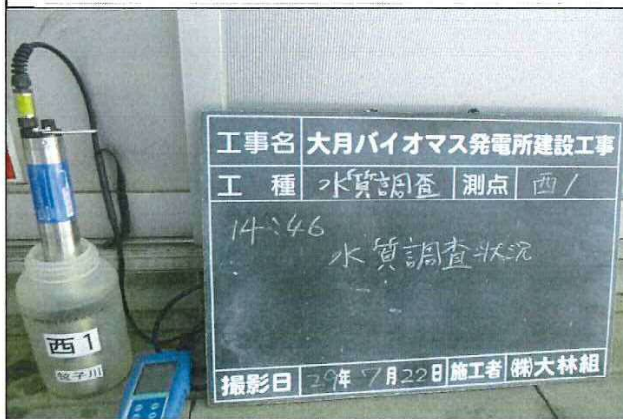 工事名 大月バイオマス発電所建設工事
工種 水質調査 測点 西1
14:46
水質調査状況
撮影日 29年7月22日 施工者 ㈱大林組
西1
笹子川